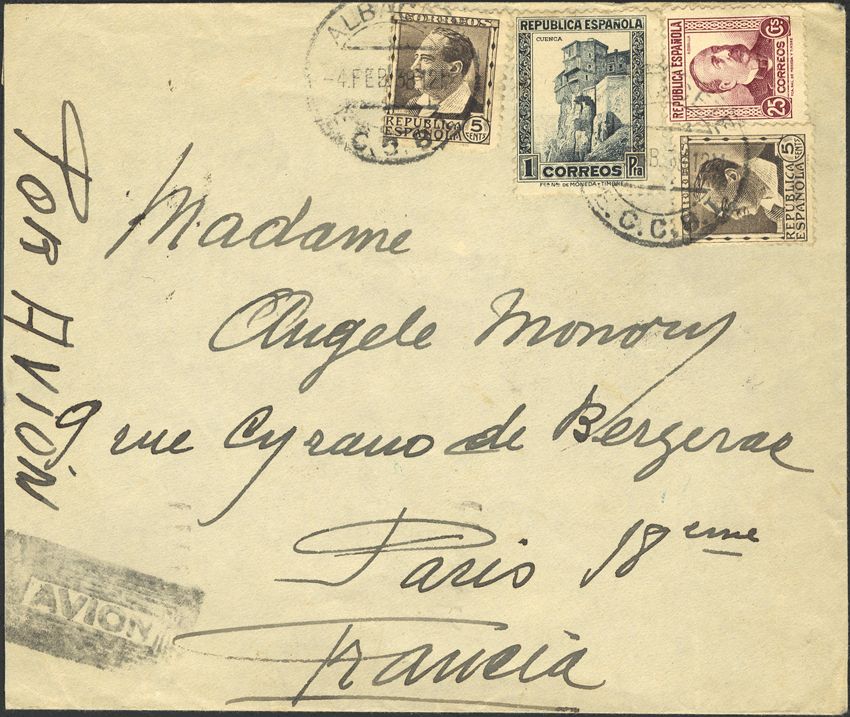 CORREOS
REPÚBLICA ESPAÑOLA
5 CENTS
REPUBLICA ESPAÑOLA
CUENCA
1 CORREOS Pta
FCA. NAL. DE MONEDA Y TIMBRE
REPUBLICA ESPAÑOLA
25 Cts
CORREOS
CORREOS
REPÚBLICA ESPAÑOLA
5 CENTS
-4.FEB 38 12
C. C. B
C. C. B
POR AVION
Madame
Angele Monory
9 rue Cyrano de Bergerac
Paris 18eme
Francia
AVION